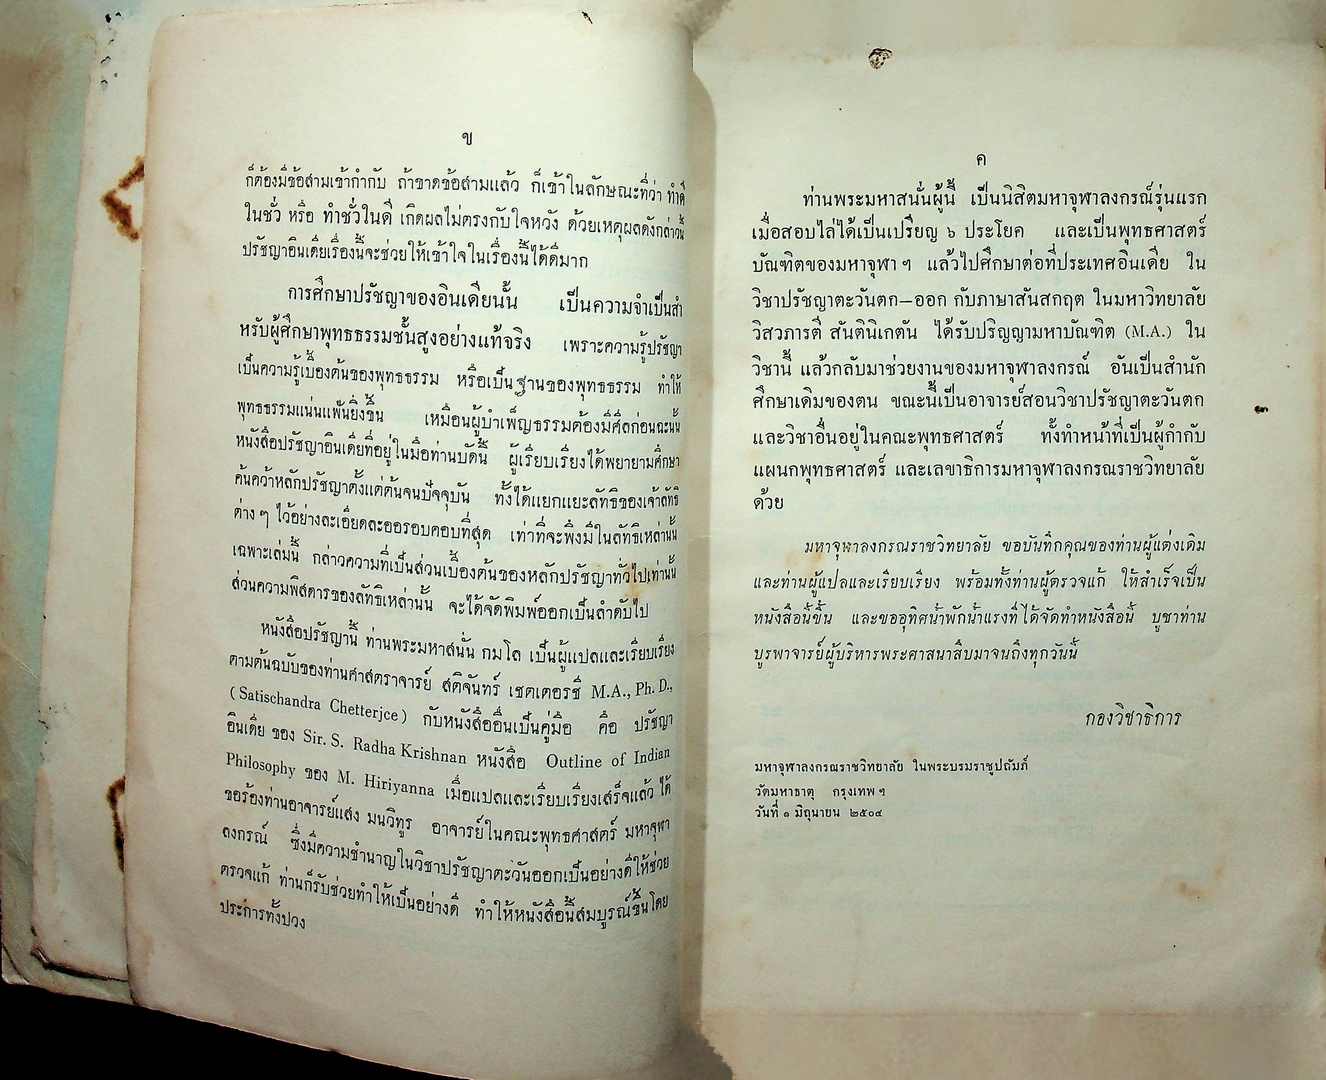 ข
ก็ต้องมีข้อสามเข้ากำกับ ถ้าขาดข้อสามแล้ว ก็เข้าในลักษณะที่ว่า ทำดี
ในชั่ว หรือ ทำชั่วในดี เกิดผลไม่ตรงกับใจหวัง ด้วยเหตุผลดังกล่าวนี้
ปรัชญาอินเดียเรื่องนี้จะช่วยให้เข้าใจในเรื่องนี้ได้ดีมาก
การศึกษาปรัชญาของอินเดียนั้น เป็นความจำเป็นสำ
หรับผู้ศึกษาพุทธธรรมชั้นสูงอย่างแท้จริง เพราะความรู้ปรัชญา
เป็นความรู้เบื้องต้นของพุทธธรรม หรือเป็นฐานของพุทธธรรม ทำให้
พุทธธรรมแน่นแฟ้นยิ่งขึ้น เหมือนผู้บำเพ็ญธรรมต้องมีศีลก่อนฉะนั้น
หนังสือปรัชญาอินเดียที่อยู่ในมือท่านบัดนี้ ผู้เรียบเรียงได้พยายามศึกษา
ค้นคว้าหลักปรัชญาตั้งแต่ต้นจนปัจจุบัน ทั้งได้แยกแยะลัทธิของเจ้าลัทธิ
ต่าง ๆ ไว้อย่างละเอียดละออรอบคอบที่สุด เท่าที่จะพึงมีในลัทธิเหล่านั้น
เฉพาะเล่มนี้ กล่าวความที่เป็นส่วนเบื้องต้นของหลักปรัชญาทั่วไปเท่านั้น
ส่วนความพิสดารของลัทธิเหล่านั้น จะได้จัดพิมพ์ออกเป็นลำดับไป
หนังสือปรัชญานี้ ท่านพระมหาสนั่น กมโล เป็นผู้แปลและเรียบเรียง
ตามต้นฉบับของท่านศาสตราจารย์ สติจันทร์ เชตเตอรชี M.A., Ph. D.,
(Satischandra Chetterjce) กับหนังสืออื่นเป็นคู่มือ คือ ปรัชญา
อินเดีย ของ Sir. S. Radha Krishnan หนังสือ Outline of Indian
Philosophy ของ M. Hiriyanna เมื่อแปลและเรียบเรียงเสร็จแล้ว ได้
ขอร้องท่านอาจารย์แสง มนวิทูร อาจารย์ในคณะพุทธศาสตร์ มหาจุฬา
ลงกรณ์ ซึ่งมีความชำนาญในวิชาปรัชญาตะวันออกเป็นอย่างดีให้ช่วย
ตรวจแก้ ท่านก็รับช่วยทำให้เป็นอย่างดี ทำให้หนังสือนี้สมบูรณ์ขึ้นโดย
ประการทั้งปวง
ค
ท่านพระมหาสนั่นผู้นี้ เป็นนิสิตมหาจุฬาลงกรณ์รุ่นแรก
เมื่อสอบไล่ได้เป็นเปรียญ ๖ ประโยค และเป็นพุทธศาสตร์
บัณฑิตของมหาจุฬา ฯ แล้วไปศึกษาต่อที่ประเทศอินเดีย ใน
วิชาปรัชญาตะวันตก–ออก กับภาษาสันสกฤต ในมหาวิทยาลัย
วิสวภารตี สันตินิเกตัน ได้รับปริญญามหาบัณฑิต (M.A.) ใน
วิชานี้ แล้วกลับมาช่วยงานของมหาจุฬาลงกรณ์ อันเป็นสำนัก
ศึกษาเดิมของตน ขณะนี้เป็นอาจารย์สอนวิชาปรัชญาตะวันตก
และวิชาอื่นอยู่ในคณะพุทธศาสตร์ ทั้งทำหน้าที่เป็นผู้กำกับ
แผนกพุทธศาสตร์ และเลขาธิการมหาจุฬาลงกรณราชวิทยาลัย
ด้วย
มหาจุฬาลงกรณราชวิทยาลัย ขอบันทึกคุณของท่านผู้แต่งเดิม
และท่านผู้แปลและเรียบเรียง พร้อมทั้งท่านผู้ตรวจแก้ ให้สำเร็จเป็น
หนังสือนี้ขึ้น และขออุทิศน้ำพักน้ำแรงที่ได้จัดทำหนังสือนี้ บูชาท่าน
บูรพาจารย์ผู้บริหารพระศาสนาสืบมาจนถึงทุกวันนี้
กองวิชาธิการ
มหาจุฬาลงกรณราชวิทยาลัย ในพระบรมราชูปถัมภ์
วัดมหาธาตุ กรุงเทพ ฯ
วันที่ ๑ มิถุนายน ๒๕๐๔